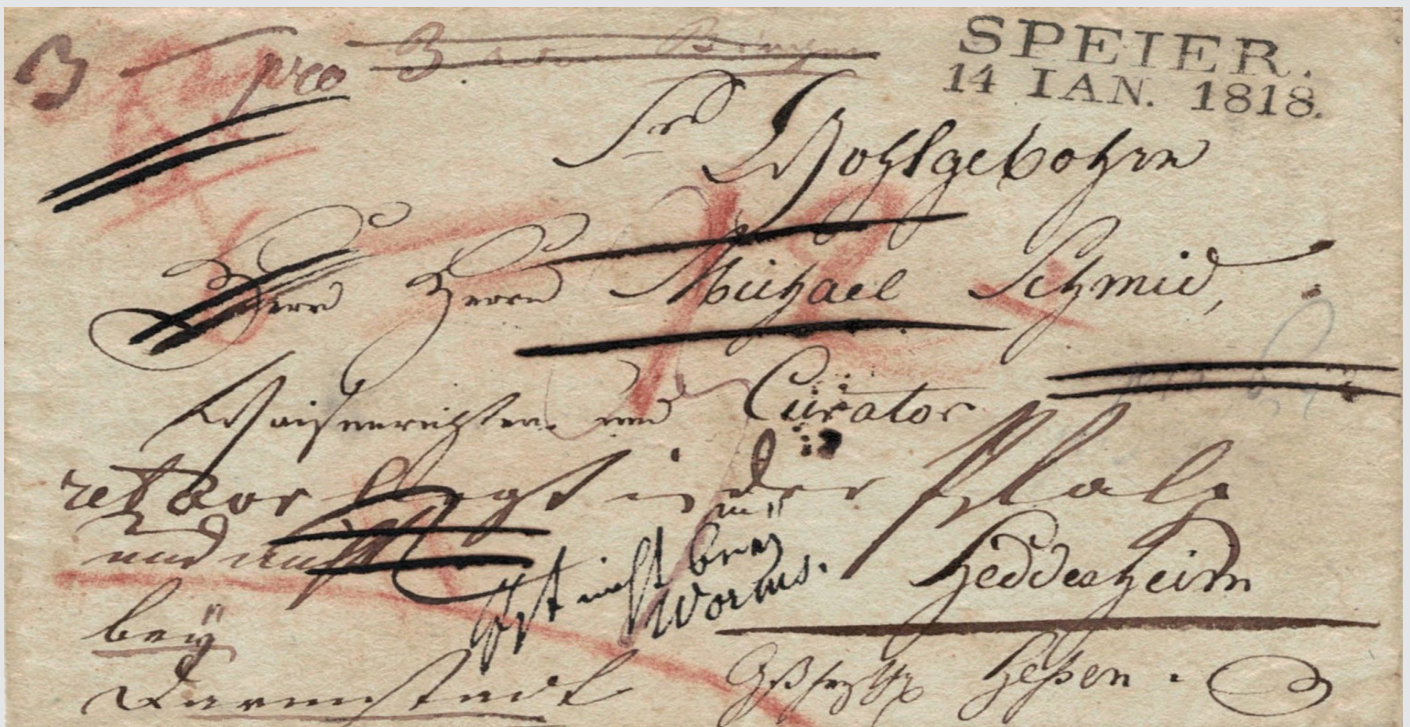 3 pro 3
SPEIER.
14 IAN. 1818.
Sr Wohlgebohrn
Herrn Herrn Michael Schmid,
12
Waisenrichter und Curator
retour liegt in der Pfalz
und nicht
ist nicht bey
Worms.
Heddesheim
bey
Darmstadt
Hessen.